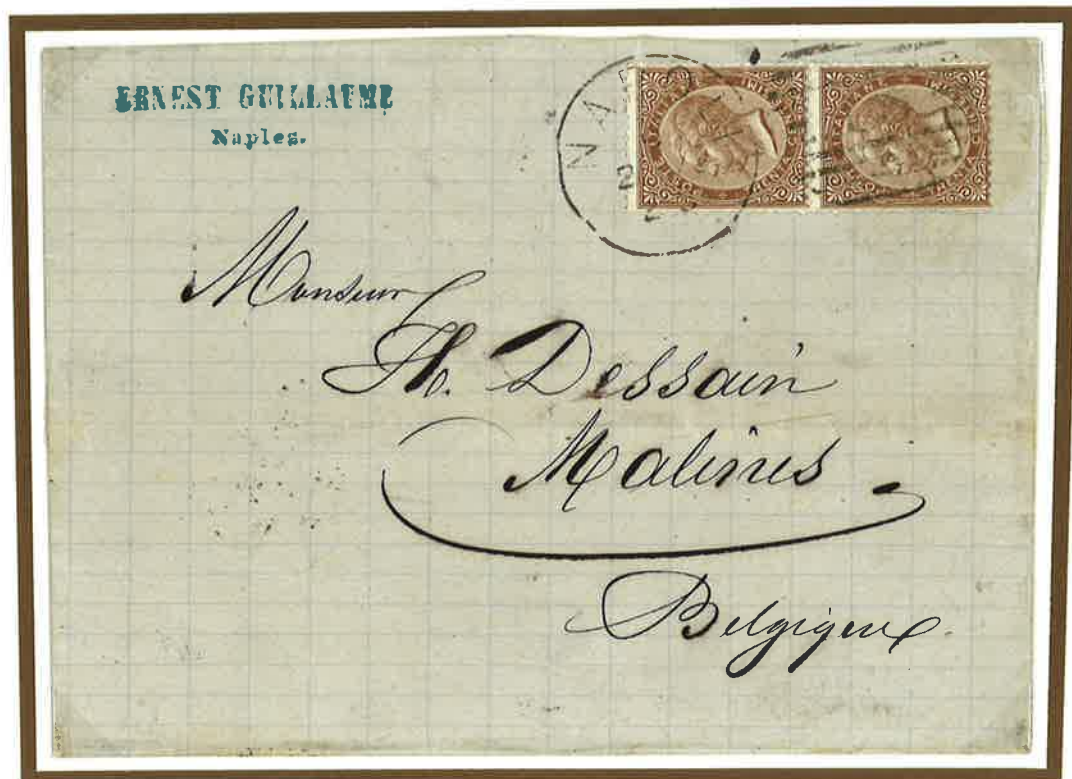 ERNEST GUILLAUME
Naples.
NAP
Monsieur
H. Dessain
Malines
Belgique